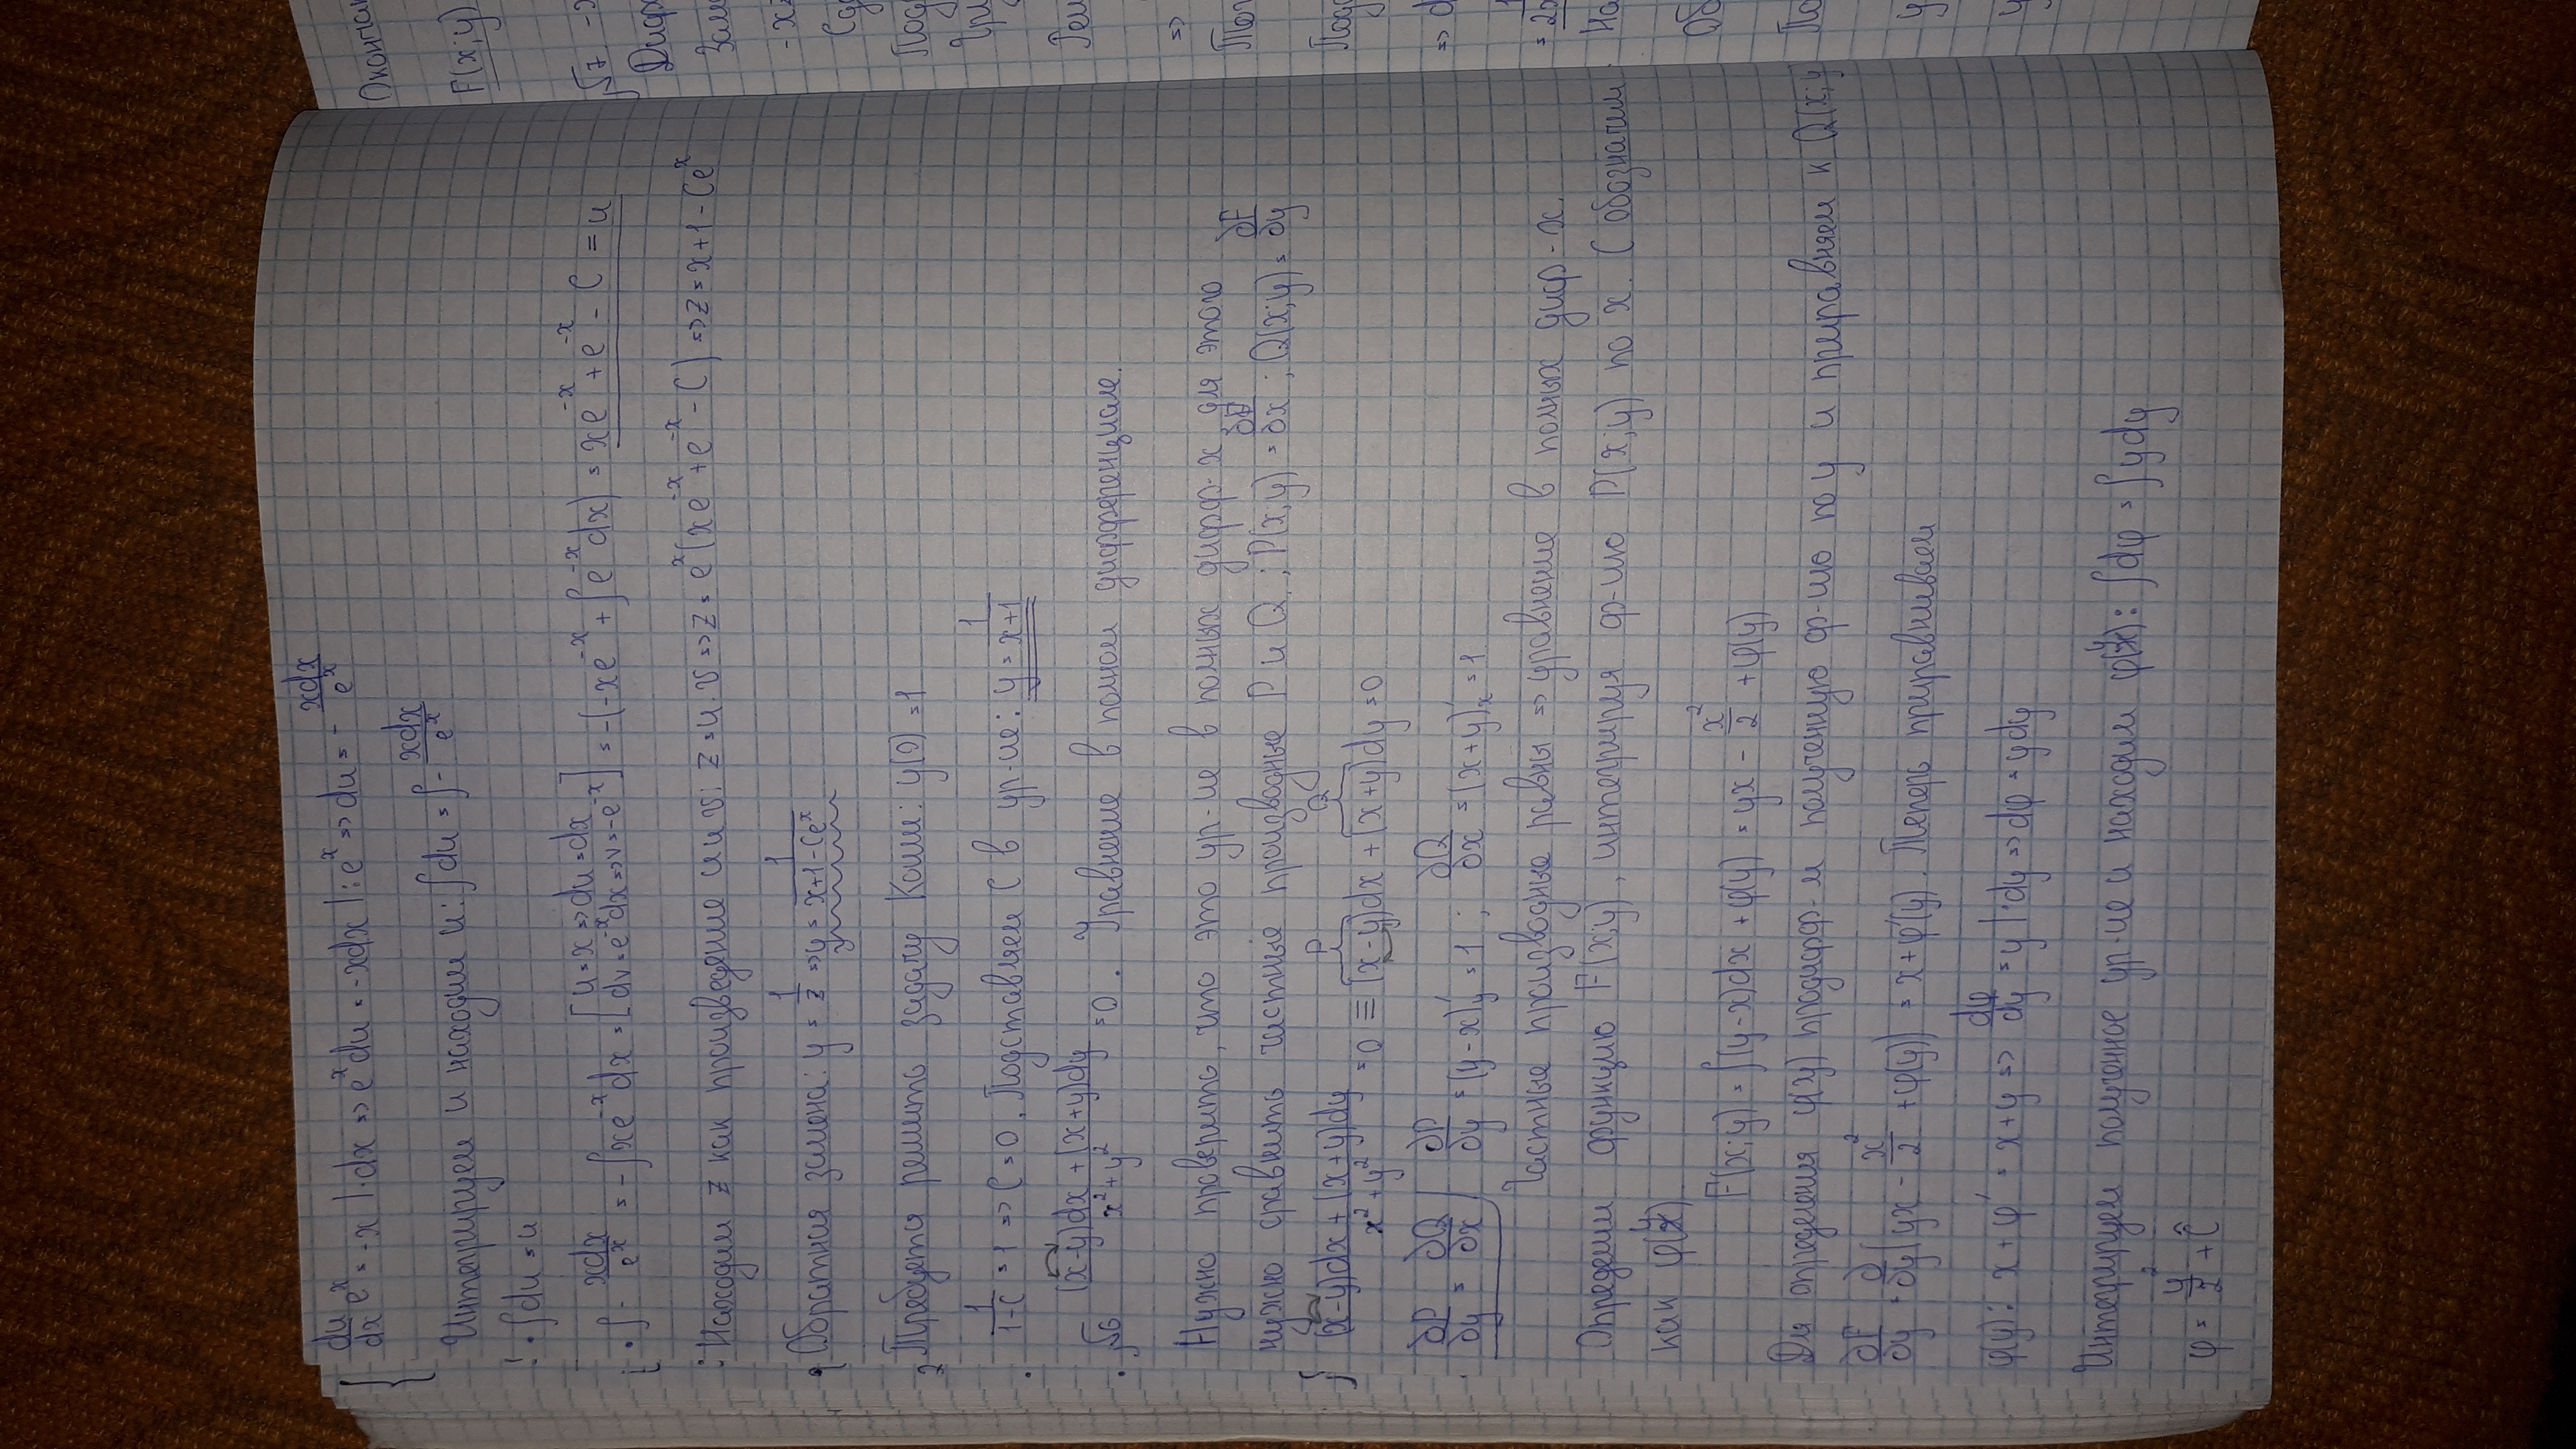 du/dx e^x = -x |·dx => e^x du = -xdx |: e^x => du = - xdx/e^x
Интегрируем и находим u: ∫du = ∫- xdx/e^x
• ∫du = u
• ∫- xdx/e^x = -∫xe^-x dx = [u=x => du=dx; dv=e^-x dx => v=-e^-x] = -(-xe^-x + ∫e^-x dx) = xe^-x + e^-x - C = u
Находим z как произведение u и v: z = u·v => z = e^x(xe^-x + e^-x - C) => z = x+1-Ce^x
Обратная замена: y = 1/z => y = 1/(x+1-Ce^x)
Требуется решить задачу Коши: y(0) = 1
1/(1-C) = 1 => C = 0. Подставляем C в ур-ие: y = 1/(x+1)
√6 ((x-y)dx + (x+y)dy)/(x²+y²) = 0. Уравнение в полном дифференциале.
Нужно проверить, что это ур-ие в полных дифф-х, для этого
нужно сравнить частные производные P и Q; P(x;y) = ∂F/∂x; Q(x;y) = ∂F/∂y
((x-y)dx + (x+y)dy)/(x²+y²) = 0 ≡ (x-y)dx + (x+y)dy = 0 P Q
∂P/∂y = ∂Q/∂x ∂P/∂y = (y-x)'y = 1; ∂Q/∂x = (x+y)'x = 1
Частные производные равны => уравнение в полных диф-х.
Определим функцию F(x;y), интегрируя ф-ию P(x;y) по x. C обозначим
как φ(y)
F(x;y) = ∫(y-x)dx + φ(y) = yx - x²/2 + φ(y)
Для определения φ(y) продифф-м полученную ф-ию по y и приравняем к Q(x;y)
∂F/∂y = ∂/∂y(yx - x²/2 + φ(y)) = x + φ'(y). Теперь приравниваем
φ(y): x + φ' = x+y => dφ/dy = y |·dy => dφ = ydy
Интегрируем полученное ур-ие и находим φ(y): ∫dφ = ∫ydy
φ = y²/2 + Ĉ
F(x;y)
√7